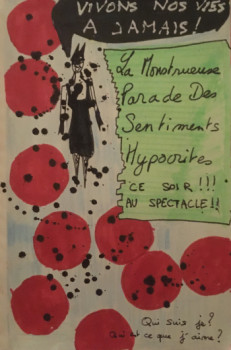 VIVONS NOS VIES
A JAMAIS!
La Monstrueuse
Parade Des
Sentiments
Hypocrites
CE SOIR!!!
AU SPECTACLE!!
Qui suis je?
Qui est ce que j'aime?